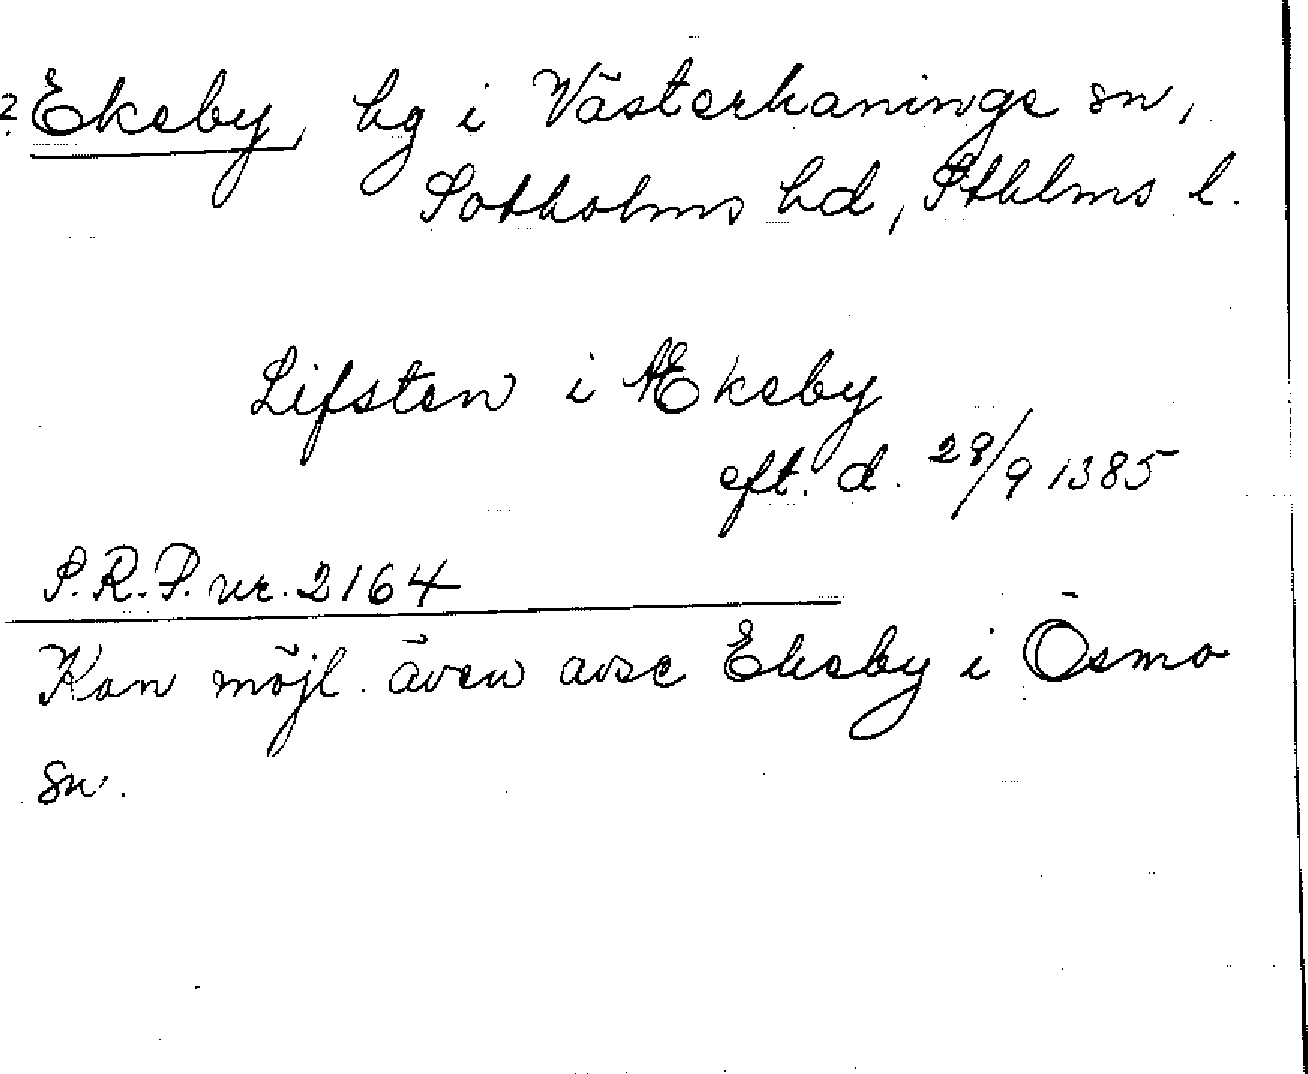 ? Ekeby, hg i Västerhaninge sn,
Sotholms hd, Sthlms l.
Lifsten i Ækeby
eft. d. 28/9 1385
S.R.P. nr. 2164
Kan möjl. även avse Ekeby i Ösmo
sn.